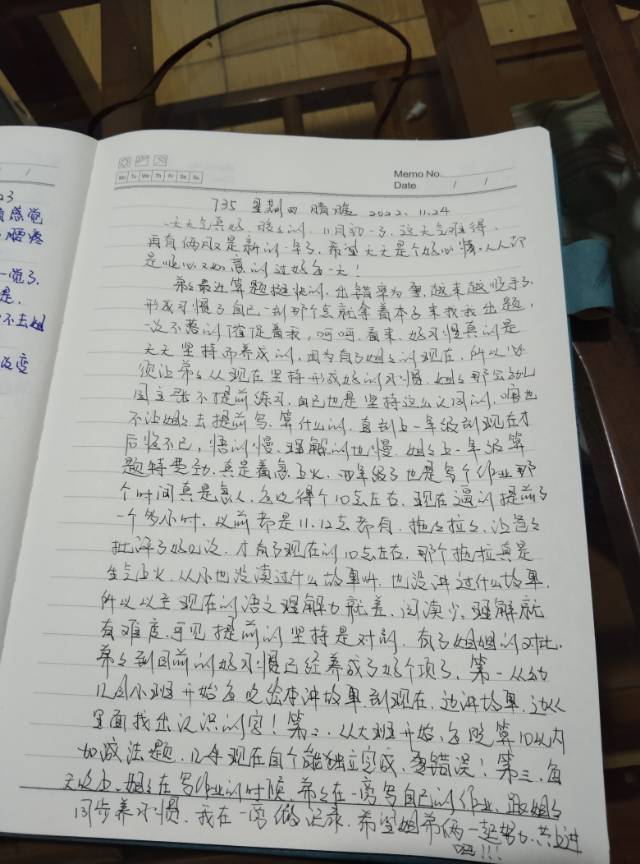 23
感觉
腰疼
一觉了.
是.
不去姐
改变
Mo Tu We Th Fr Sa Su
Memo No.
Date / /
735 星期四 晴暖 2022.11.24
天天气真好, 暖和的, 11月初一了, 这天气难得,
再有俩月又是新的一年了, 希望天天是个好心情, 人人都
是顺心如意的过好每一天!
弟弟最近算题挺快的, 出错率为零, 越来越顺手了.
形成习惯了自己一到那个点就拿着本子来找我出题,
一次不落的催促着我, 呵呵, 看来, 好习惯真的是
天天坚持而养成的, 因为有了姐姐的现在, 所以必
须让弟弟从现在坚持形成好的习惯. 姐姐那会幼儿
园主张不提前练习, 自己也是坚持这么认同的, 咱也
不让姐姐去提前写, 算什么的, 直到上一年级到现在才
后悔不已, 悟的慢, 理解的也慢, 姐姐上一年级算
题特费劲, 真是着急上火, 四年级了也是写个作业那
个时间真是急人, 每晚得个10点左右, 现在逼的提前了
一个多小时, 以前都是11.12点都有, 拖拖拉拉, 没少
批评了好几次, 才有了现在的10点左右, 那个拖拉真是
生气上火, 从小也没读过什么故事书, 也没讲过什么故事,
所以以至现在的语文理解力就差, 阅读少, 理解就
有难度, 可见提前的坚持是对的, 有了姐姐的对比,
弟弟到目前的好习惯已经养成了好个项了, 第一从幼
儿园小班开始每晚拿本讲故事到现在, 边讲故事, 边从
里面找出认识的字! 第二, 从大班开始, 每晚算10以内
加减法题, 几乎现在自个能独立完成, 零错误! 第三, 每
天晚上, 姐姐在写作业的时候, 弟弟在一旁写自己的作业, 跟姐姐
同步养习惯, 我在一旁做记录, 希望姐弟俩一起努力, 共上进
吧!!!